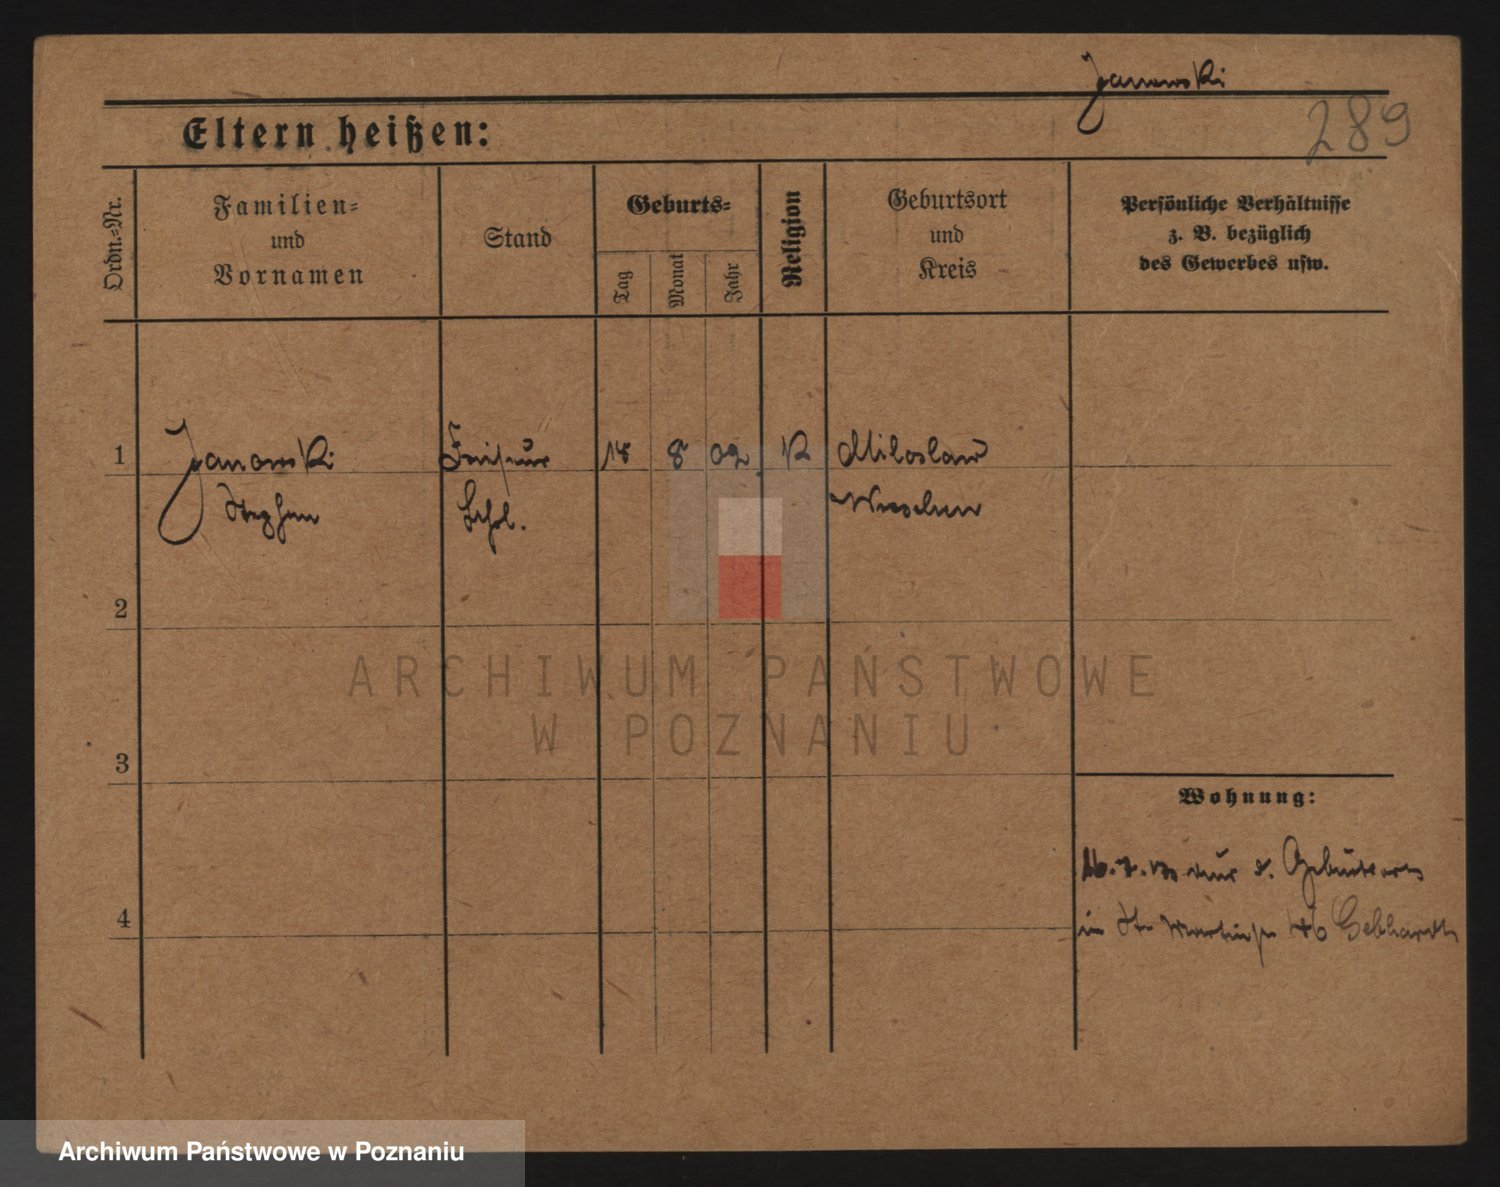 Janowski
289
Eltern heißen:
Ordn.-Nr.
Familien-
und
Vornamen
Stand
Geburts-
Tag
Monat
Jahr
Religion
Geburtsort
und
Kreis
Persönliche Verhältnisse
z. B. bezüglich
des Gewerbes usw.
1 Janowski Friseur 18 8 02 K Miloslaw
Stephan Lehrl. Wreschen
2
3
4
Wohnung:
16. 7.
in St. Martinstr 46 Gebhardt
ARCHIWUM PAŃSTWOWE
W POZNANIU
Archiwum Państwowe w Poznaniu